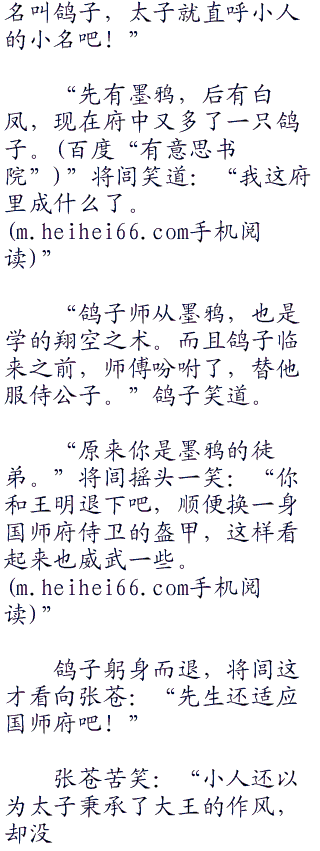 名叫鸽子，太子就直呼小人
的小名吧！”
“先有墨鸦，后有白
凤，现在府中又多了一只鸽
子。(百度“有意思书
院”)”将闾笑道：“我这府
里成什么了。
(m.heihei66.com手机阅
读)”
“鸽子师从墨鸦，也是
学的翔空之术。而且鸽子临
来之前，师傅吩咐了，替他
服侍公子。”鸽子笑道。
“原来你是墨鸦的徒
弟。”将闾摇头一笑：“你
和王明退下吧，顺便换一身
国师府侍卫的盔甲，这样看
起来也威武一些。
(m.heihei66.com手机阅
读)”
鸽子躬身而退，将闾这
才看向张苍：“先生还适应
国师府吧！”
张苍苦笑：“小人还以
为太子秉承了大王的作风，
却没